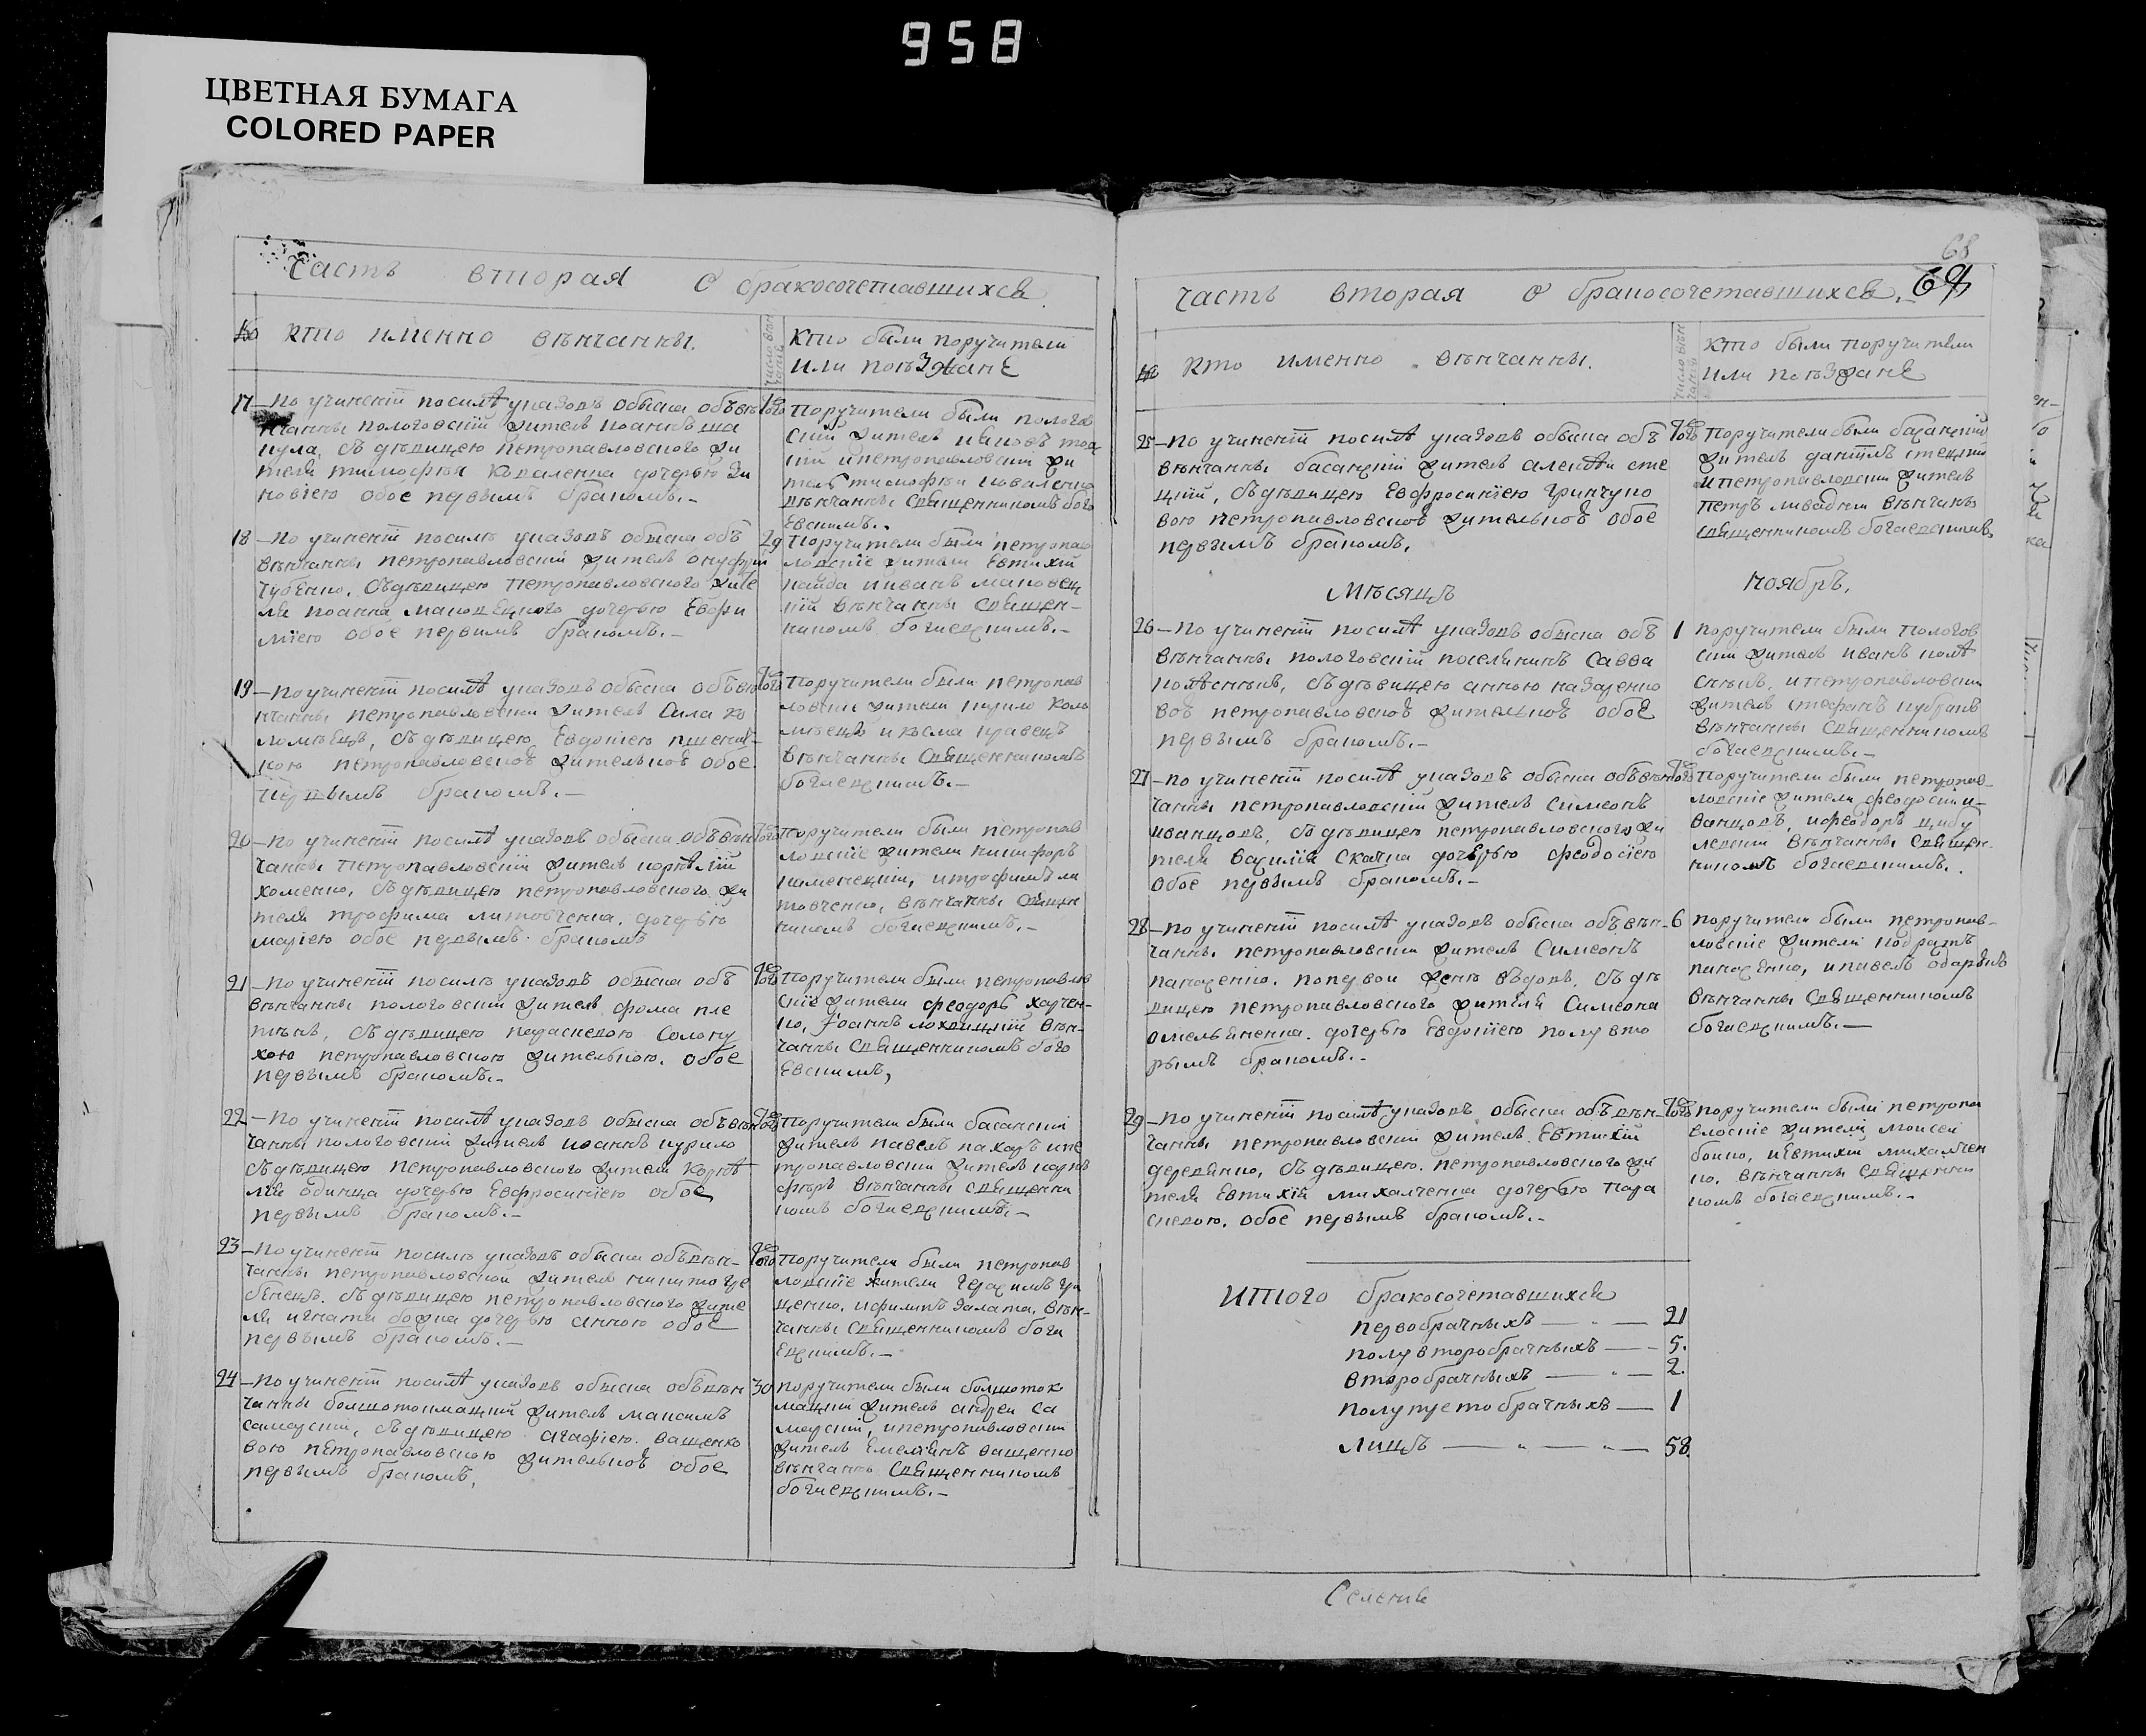 958
ЦВЕТНАЯ БУМАГА
COLORED PAPER
Часть вторая О бракосочетавшихся
№ Кто именно вѣнчанны.
Число вѣнчаній
Кто были поручители
или поѣзжанЕ
17 – По учиненіи посилѣ указовъ обыска объвѣн 
чанны пологовскій житель Иоаннъ ша
пула, съ дѣвицею петропавловского жи
теля тимофѣя Коваленка дочерью Зи
новіею обое первымъ бракомъ. –
тогожъ
Поручители были пологов
скій житель
и петропавловскій жи
тель тимофѣй коваленко
вѣнчанны Священникомъ бого
Евскимъ.
18 – По учиненіи посилѣ указовъ обыска объ
вѣнчанны петропавловскій житель онуфрій
Губенко, Съ дѣвицею Петропавловского жите
ля иоанна Маковецкого дочерью Евфи
міею обое первымъ бракомъ. –
29
Поручители были петропав
ловскіе жители Евтихій
найда и иванъ маковец
кій вѣнчанны Священ-
никомъ богаевскимъ. –
19 – По учиненіи посилѣ указовъ обыска объвѣ
нчанны петропавловскій житель Сила ко
ломѣецъ, съ дѣвицею Евдокіею пшенич-
ною петропавловскою жителькою обое
первымъ бракомъ. –
тогожъ
Поручители были петропав
ловскіе жители кирило коло
мѣецъ и козма кравецъ
вѣнчанны Священникомъ
богаевскимъ. –
20 – По учиненіи посилѣ указовъ обыска объвѣн
чанны Петропавловскій житель корнѣлій
хоменко, съ дѣвицею петропавловского жи
теля трофима литовченка, дочерью
маріею обое первымъ бракомъ
тогожъ
Поручители были петропав
ловскіе жители никифоръ
каменецкій, и трофимъ ли
товченко, вѣнчанны Священ
никомъ богаевскимъ. –
21 – По учиненіи посилѣ указовъ обыска объ
вѣнчанны пологовскій житель фома пле
тѣнь, съ дѣвицею параскевою Солону
хою петропавловскою жителькою, обое
первымъ бракомъ. –
тогожъ
Поручители были петропавлов
скіе жители феодоръ харчен-
ко, Іоаннъ лохвицкій вѣн-
чанны Священникомъ бого
Евскимъ,
22 – По учиненіи посилѣ указовъ обыска объвѣн
чанны пологовскій житель иоаннъ курило
съ дѣвицею петропавловского жителя Корнѣ
лія одинца дочерью Евфросиніею обое
первымъ бракомъ. –
тогожъ
Поручители были басанскій
житель павелъ пахаръ и пе
тропавловскій житель
вѣнчанны Священни
комъ богаевскимъ. –
23 – По учиненіи посилѣ указовъ обыска объвѣн-
чанны петропавловскій житель никита гре
бенецъ, съ дѣвицею петропавловского жите
ля игнатія божка дочерью анною обое
первымъ бракомъ. –
тогожъ
Поручители были петропав
ловскіе жители герасимъ гри
ценко, и филипъ Залата, вѣн-
чанны Священникомъ бога
Евскимъ. –
24 – По учиненіи посилѣ указовъ обыска объвѣн
чанны болшотокмацкій житель максимъ
самарскій, съ дѣвицею агафіею ващенко
вою петропавловскою жителькою обое
первымъ бракомъ,
30
поручители были болшоток
мацкій житель андрей са
марскій, и петропавловскій
житель Емеліянъ ващенко
вѣнчаны Священникомъ
богаевскимъ. –
68
Часть вторая О бракосочетавшихся.
№ Кто именно вѣнчанны.
Число вѣнчаній
Кто были поручители
или поѣзжанЕ
25 – По учиненіи посилѣ указовъ обыска объ
вѣнчанны басанскій житель алексѣй сте
цкій, съ дѣвицею Евфросиніею Гринчуко
вою петропавловскою жителькою обое
первымъ бракомъ.
тогожъ
Поручители были басанскій
житель даніилъ стецкій
и петропавловскій житель
петръ ливадній вѣнчаны
священникомъ богаевскимъ.
Мѣсяцъ Ноябрь,
26 – По учиненіи посилѣ указовъ обыска объ
вѣнчанны пологовскій поселянинъ Савва
полѣсникъ, съ дѣвицею анною назаренко
вою петропавловскою жителькою обое
первымъ бракомъ. –
1
поручители были Пологов
скій житель иванъ полѣ
сникъ, и петропавловскій
житель стефанъ кубракъ
вѣнчанны Священникомъ
богаевскимъ. –
27 – По учиненіи посилѣ указовъ обыска объвѣн
чанны петропавловскій житель симеонъ
иванцовъ, съ дѣвицею петропавловского жи
теля василія Скачка дочерью феодосіею
обое первымъ бракомъ. –
тогожъ
Поручители были петропав-
ловскіе жители феодосій и-
ванцовъ, и феодоръ цибу
левскій вѣнчанны Священ-
никомъ богаевскимъ.
28 – По учиненіи посилѣ указовъ обыска объвѣн-
чанны петропавловскій житель Симеонъ
панасенко, попервой женѣ вдовъ, съ дѣ
вицею петропавловского жителя Симеона
омельяненка, дочерью Евдокіею полувто
рымъ бракомъ. –
6
поручители были петропав-
ловскіе жители кодратъ
панасенко, и павелъ одаркѣнъ
вѣнчанны Священникомъ
богаевскимъ. –
29 – По учиненіи посилѣ указовъ обыска объвѣн-
чанны петропавловскій житель Евтихій
деревянко, съ дѣвицею, петропавловского жи
теля Евтихія михалченка дочерью Пара
скевою, обое первымъ бракомъ. –
тогожъ
поручители были петропа
вловскіе жители моисей
бойко, и Евтихій михалчен
ко, вѣнчанны Священни
комъ богаевскимъ. –
ИТого бракосочетавшихся
первобрачныхъ — 21
полувторобрачныхъ — 5.
второбрачныхъ — 2.
полутретобрачныхъ — 1
лицъ — 58.